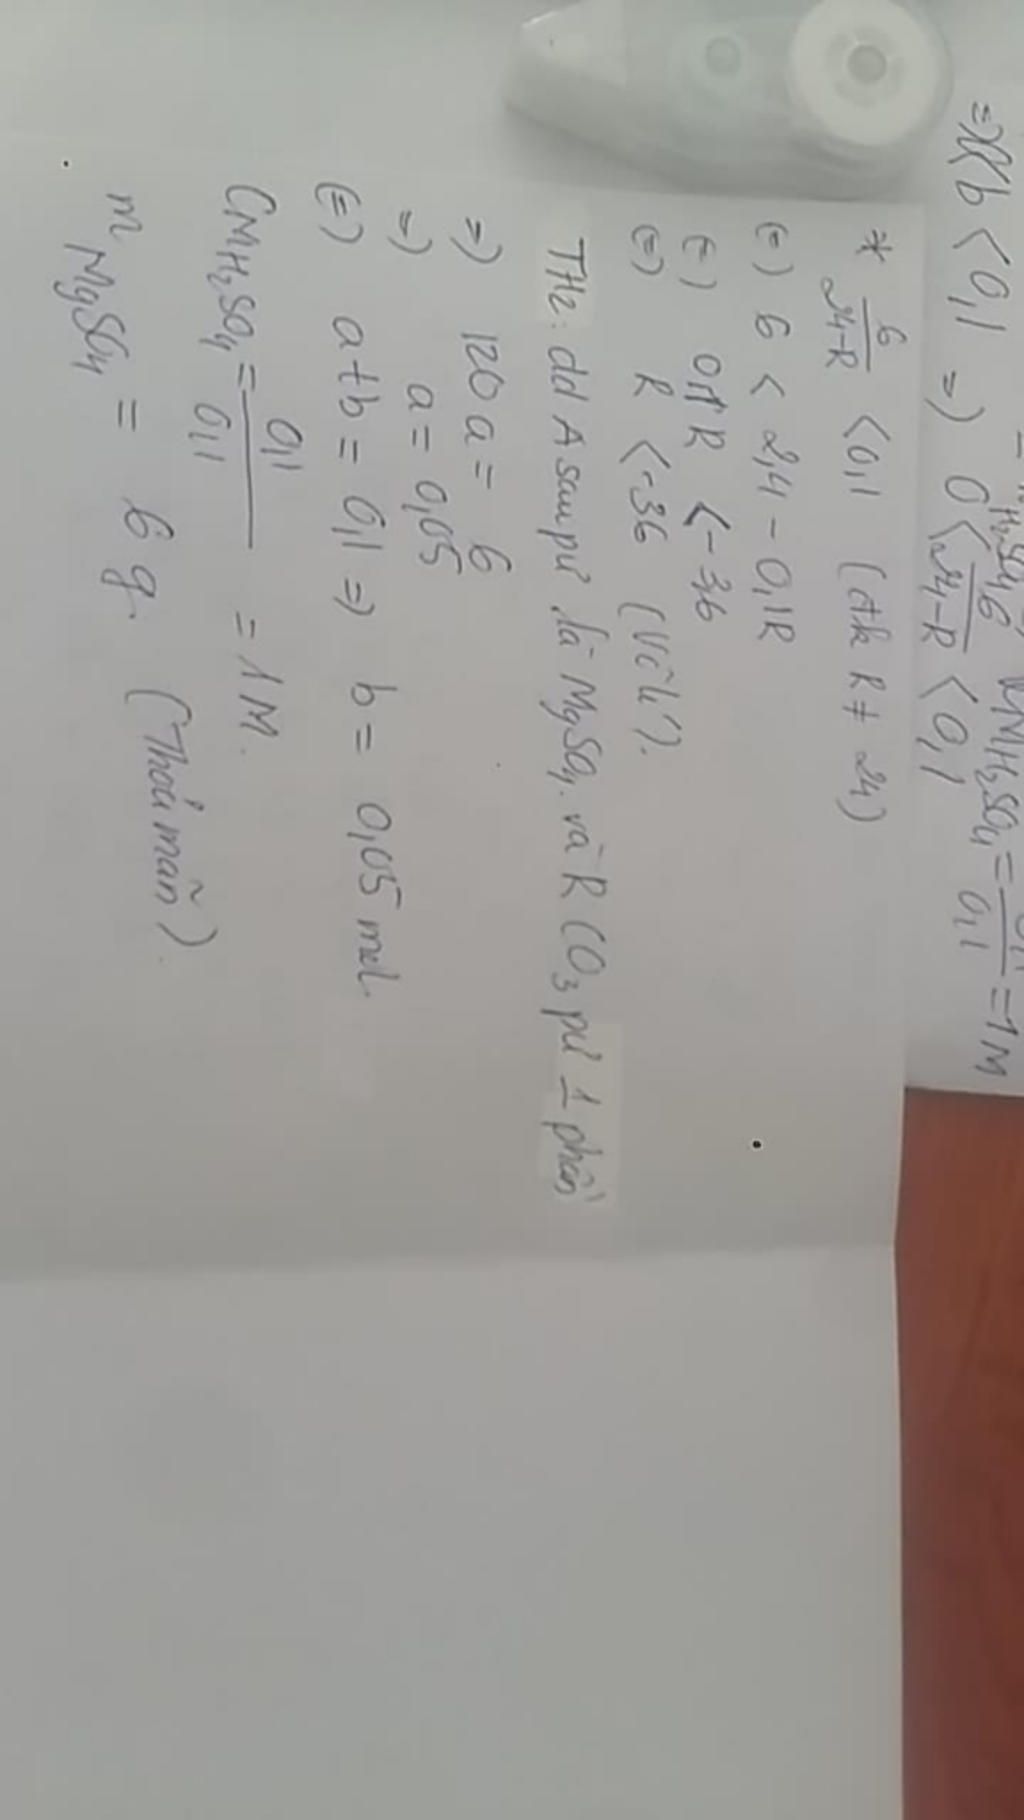 = 1M
CM H₂SO₄ = 0,1
=> b < 0,1 => 0 < 6/(24-R) < 0,1
* 6/(24-R) < 0,1 (đk R ≠ 24)
(=) 6 < 2,4 - 0,1R
(=) 0,1R < -3,6
(=) R < -36 (Vô lí).
TH2: dd A sau pư là MgSO₄ và RCO₃ pư 1 phần
=> 120a = 6
=) a = 0,05
(=) a+b = 0,1 => b = 0,05 mol.
CM H₂SO₄ = 0,1/0,1 = 1M.
m MgSO₄ = 6g. (Thoả mãn)